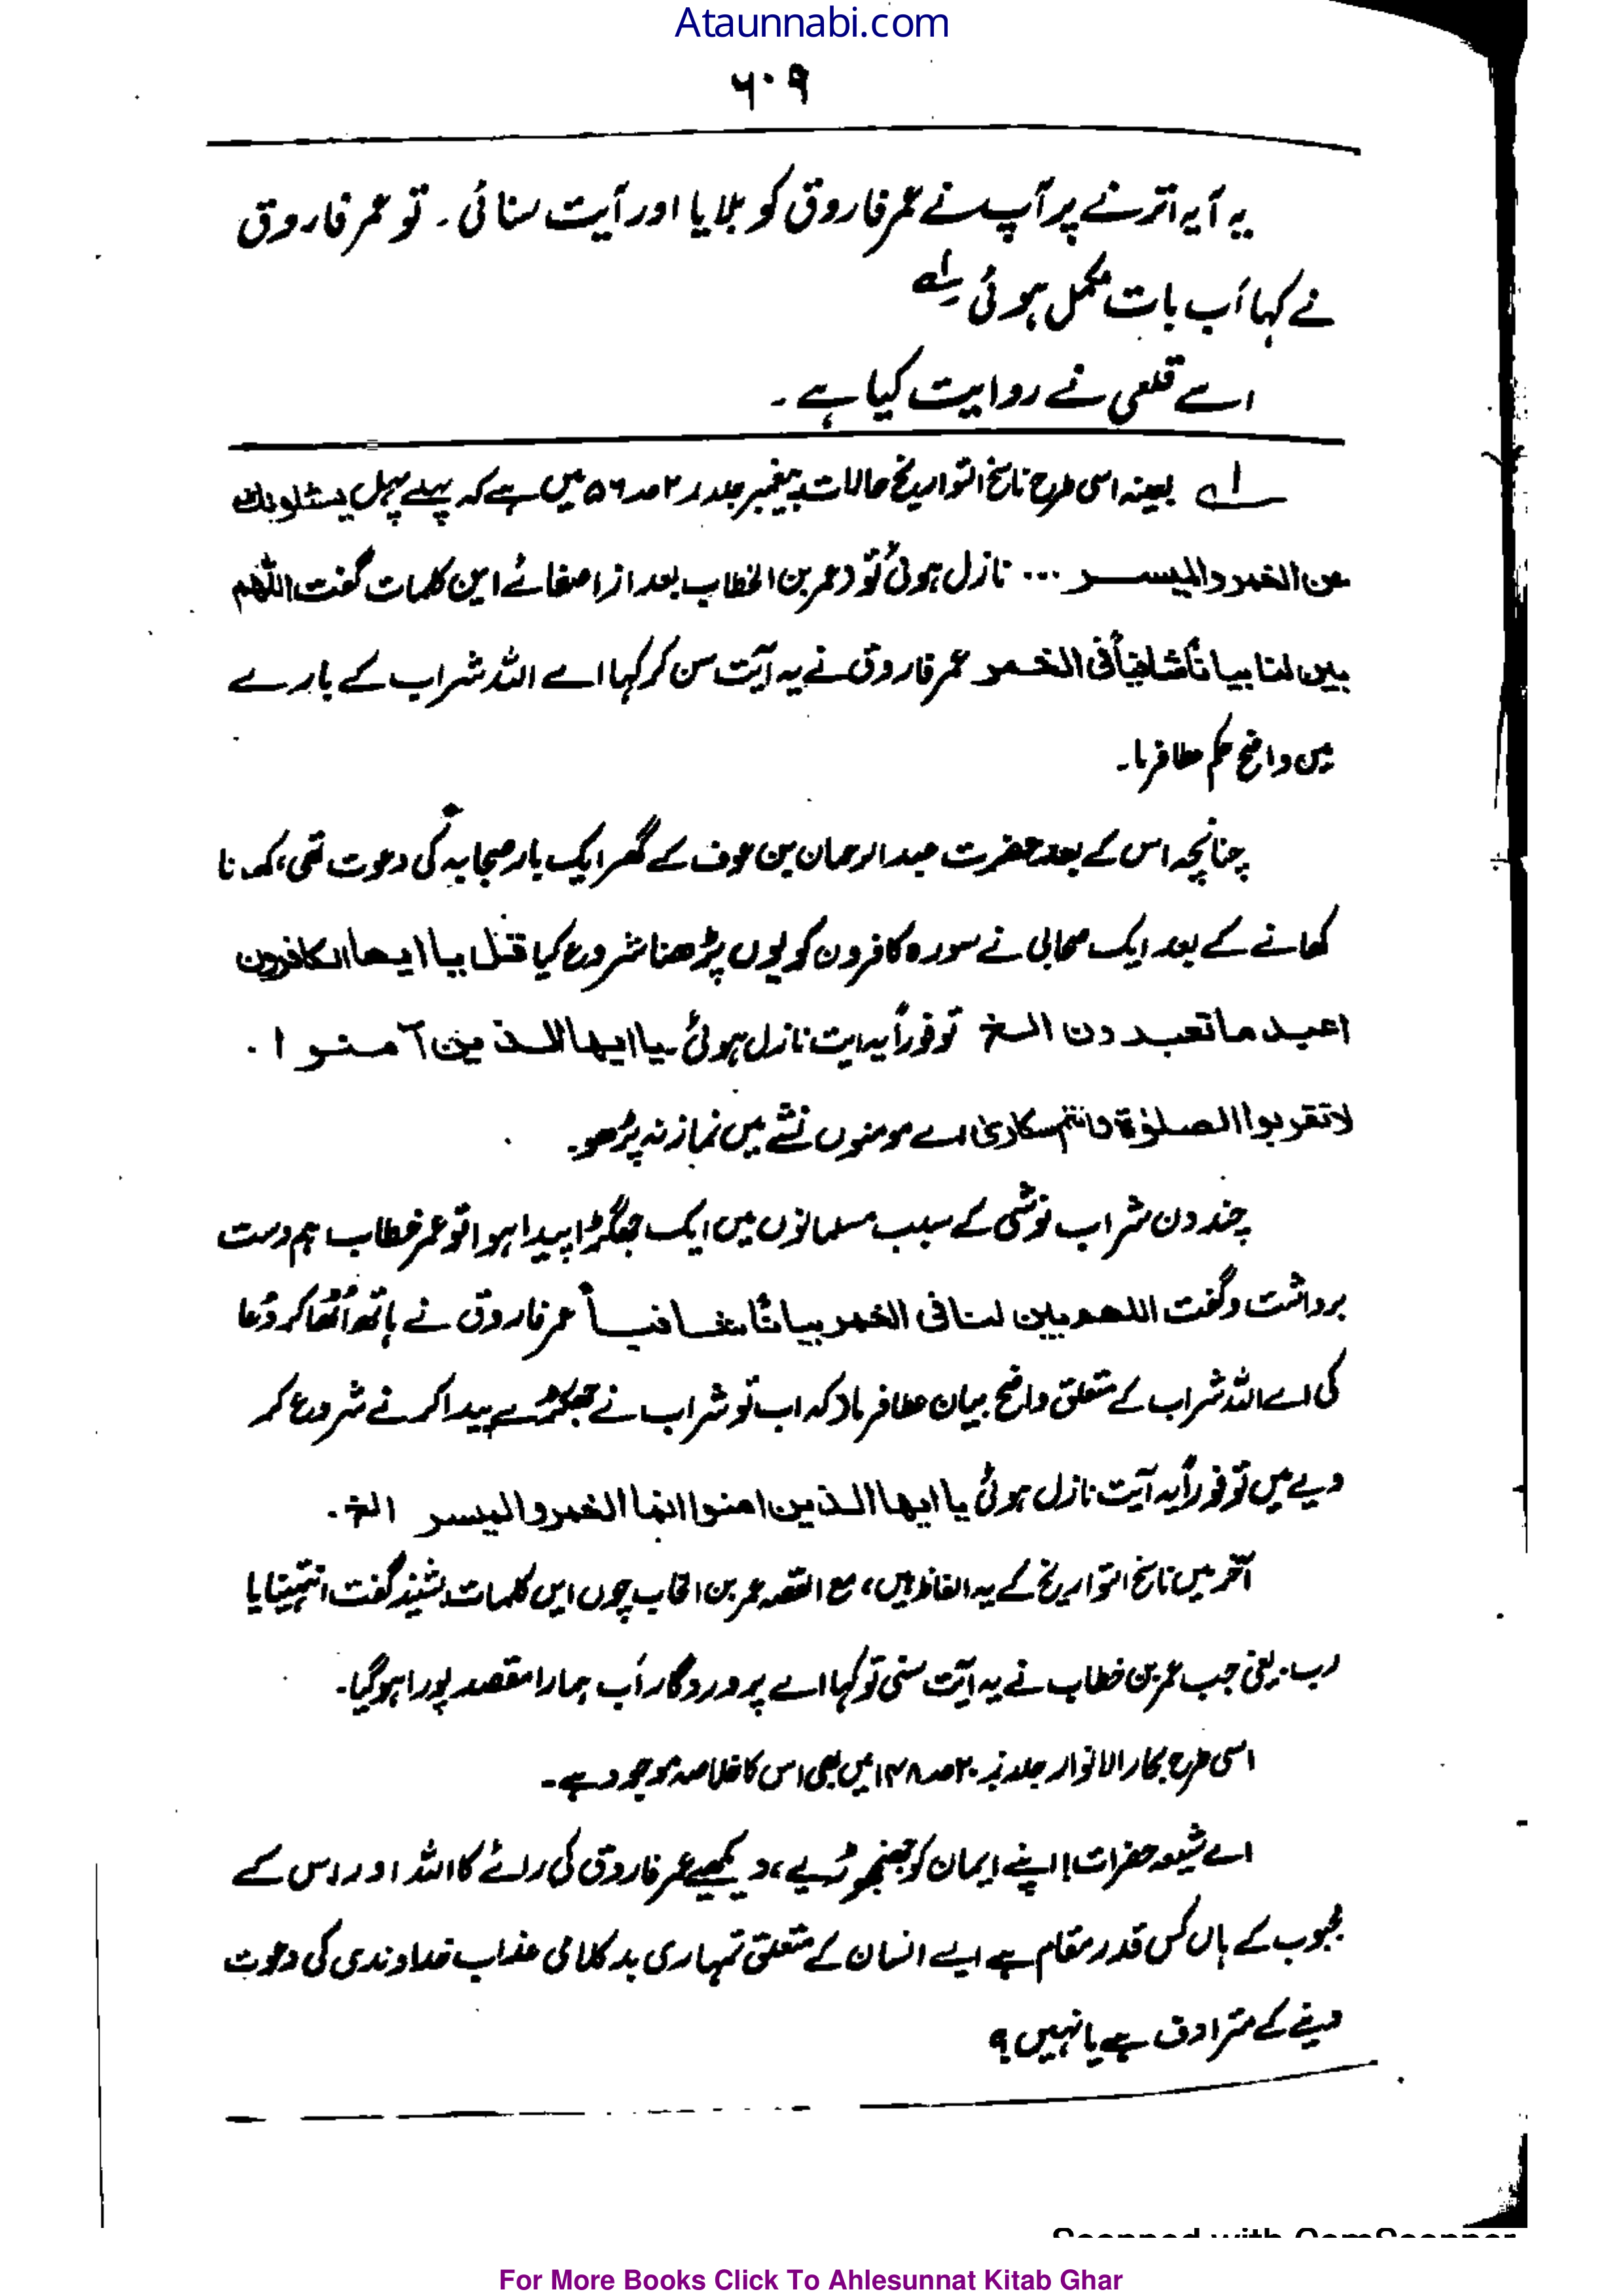 Ataunnabi.com
۶۰۹
یہ آیہ اترنے پر آپ نے عمر فاروق کو بلایا اور آیت سنائی۔ تو عمر فاروق
نے کہا اَب بات مکمل ہوئی ۱ے
اسے قلعی نے روایت کیا ہے۔
۱ے بعینہ اسی طرح ناسخ التواریخ حالات پیغمبر جلد ۲ صد ۵۶ میں ہے کہ پہلے پہل یسئلونک
عن الخمر والمیسر ... نازل ہوئی تو (عمر بن الخطاب بعد از اصغائے این کلمات گفت اللّٰھم
بین لنا بیاناً شافیاً فی الخمر عمر فاروق نے یہ آیت سن کر کہا اے اللہ شراب کے بارے
میں واضح حکم عطا فرما۔
چنانچہ اس کے بعد حضرت عبدالرحمان بن عوف کے گھر ایک بار صحابہ کی دعوت تھی، کھانا
کھانے کے بعد ایک صحابی نے سورہ کافرون کو یوں پڑھنا شروع کیا قل یا ایھا الکافرون
اعبد ما تعبدون الخ تو فوراً یہ ایت نازل ہوئی یا ایھا الذین آمنوا۔
لا تقربوا الصلوٰة وانتم سکاریٰ اے مومنوں نشے میں نماز نہ پڑھو۔
چند دن شراب نوشی کے سبب مسلمانوں میں ایک جھگڑا پیدا ہوا تو عمر خطاب ہم دست
برداشت وگفت اللھم بین لنا فی الخمر بیاناً شافیاً عمر فاروق نے ہاتھ اُٹھا کر دُعا
کی اے اللہ شراب کے متعلق واضح بیان عطا فرما دکہ اب تو شراب نے جھگڑے پیدا کرنے شروع کر
دیے ہیں تو فوراً یہ آیت نازل ہوئی یا ایھا الذین امنوا انما الخمر والمیسر الخ۔
آخر میں ناسخ التواریخ کے یہ الفاظ ہیں، مع القصہ عمر بن الخاب چوں ایں کلمات بشنید گفت انتہینا یا
رب۔ یعنی جب عمر بن خطاب نے یہ آیت سنی تو کہا اے پروردگار اَب ہمارا مقصد پورا ہوگیا۔
اسی طرح بحار الانوار جلد نمبر ۲۰ صد ۱۴۸ میں بھی اس کا خلاصہ موجود ہے۔
اے شیعہ حضرات! اپنے ایمان کو جھنجھوڑیے، دیکھیے عمر فاروق کی رائے کا اللہ اور اس کے
محبوب کے ہاں کس قدر مقام ہے ایسے انسان کے متعلق تمہاری بد کلامی عذاب خداوندی کی دعوت
دینے کے مترادف ہے یا نہیں؟
Scanned with CamScanner
For More Books Click To Ahlesunnat Kitab Ghar